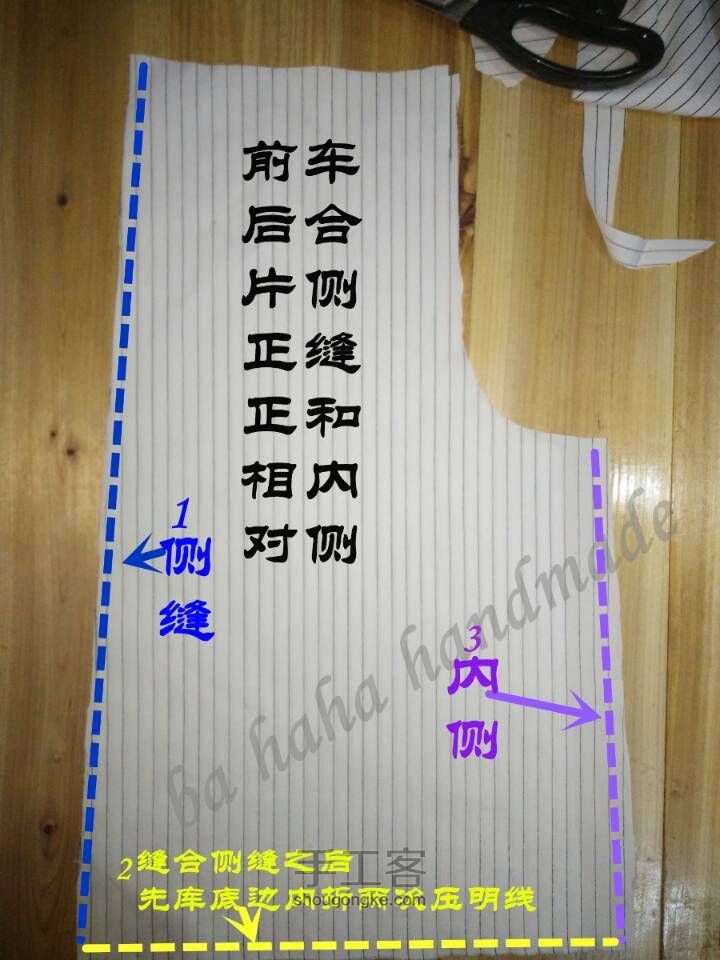 前后片正正相对
车合侧缝和内侧
1
侧缝
3
内侧
ba haha handmade
2缝合侧缝之后
先库底边内折两次压明线
手工客
shougongke.com